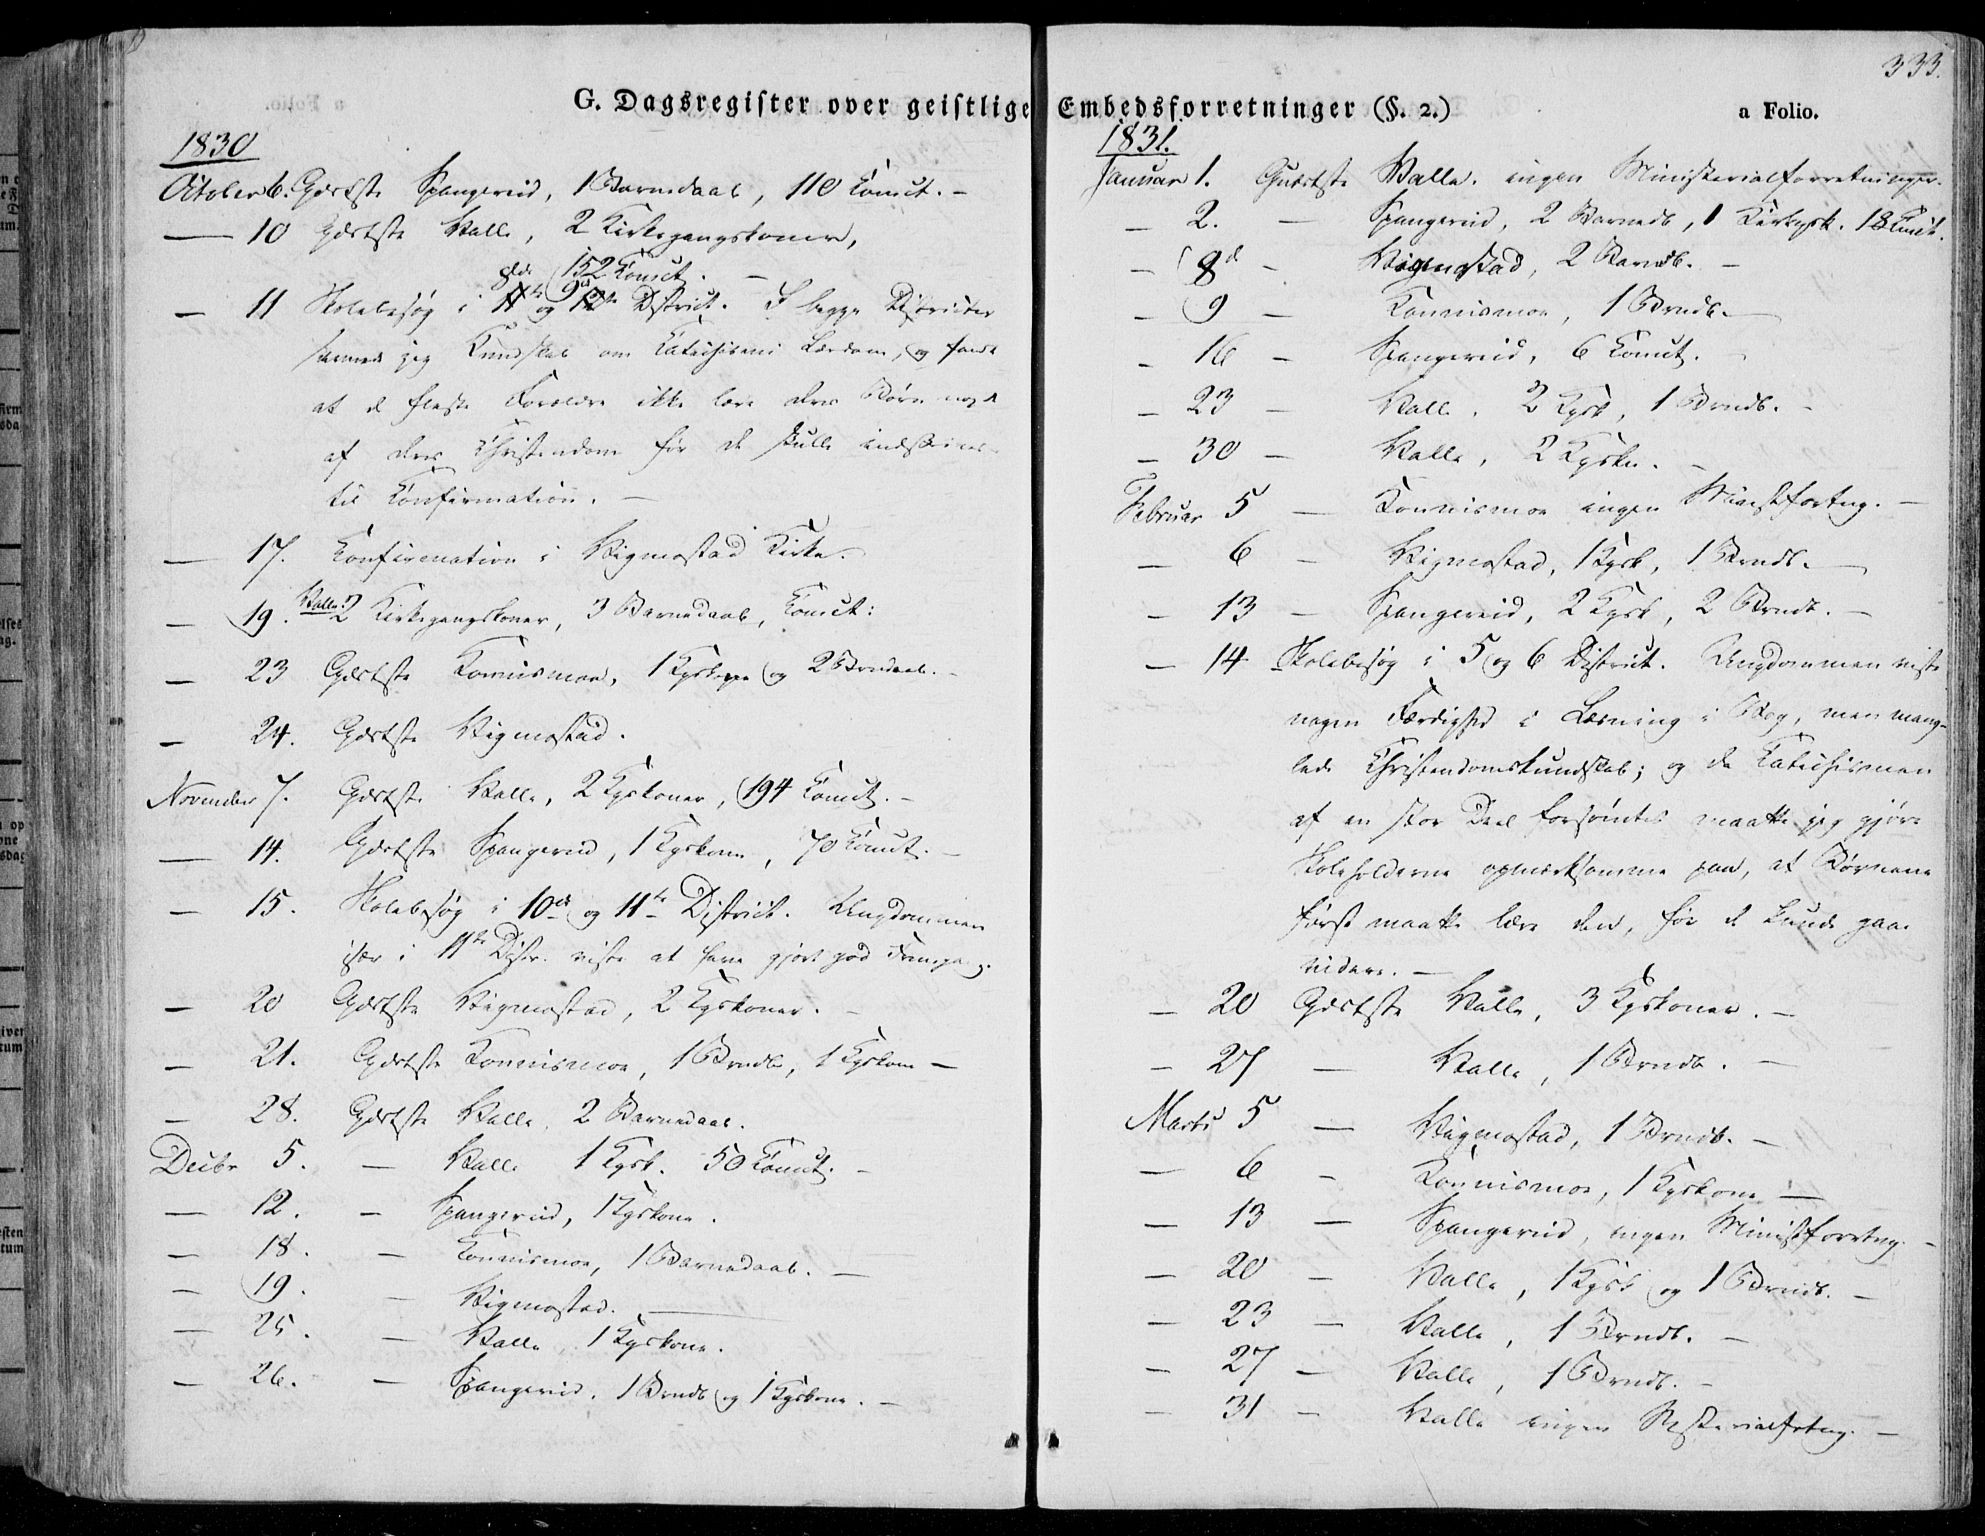 333.
G. Dagsregister over geistlige Embedsforretninger (§. 2.)
a Folio.
1830
October 6. Gudstste Spangereid, 1 Barnedaab, 110 Comct. -
— 10 Gudstste Valle, 2 Kirkegangskoner,
152 Comct. -
8de 9de
— 11 Skolebesøg i og District. I begge Districter
jeg Kundskab om Catechismi Lærdom, og fandt
at de fleste Forældre ikke lære deres Børn noget
af deres Christendom før de skulle indskrives
til Confirmation. -
— 17. Confirmation i Vigmostad Kirke.
— 19. Valle: 2 Kirkegangskoner, 3 Barnedaab, Comct:
— 23 Gudstste Konnismoe, 1 Kgskone og 2 Brndaab. -
— 24. Gudstste Vigmostad.
November 7. Gudstste Valle, 2 Kgskoner, 194 Comct. -
— 14. Gudstste Spangereid, 1 Kgskone, 70 Comct. -
— 15. Skolebesøg i 10de og 11te District. Ungdommen
især i 11te Distr. viste at have gjort god Fremgang.
— 20 Gudstste Vigmostad, 2 Kgskoner. -
— 21. Gudstste Konnismoe, 1 Brndb, 1 Kgskone —
— 28. Gudstste Valle, 2 Barnedaab.
Decbr 5. — Valle 1 Kgsk. 50 Comct. -
— 12. — Spangereid, 1 Kgskone.
— 18. — Konnismoe, 1 Barnedaab. —
— 19. — Vigmostad. —
— 25. — Valle, 1 Kgskone.
— 26. — Spangereid, 1 Brndb og 1 Kgskone. -
1831.
Januar 1. Gudstste Valle, ingen Ministerialforretninger.
— 2. — Spangereid, 2 Barnedb, 1 Kirkgsk. 18 Comct.
— 8d — Vigmostad, 2 Barndb. -
— 9 — Konnismoe, 1 Brndb. —
— 16 — Spangereid, 6 Comct. -
— 23 — Valle, 2 Kgsk, 1 Brndb. -
— 30 — Valle, 2 Kgskn. -
Februar 5 — Konnismoe ingen Minstfortng. -
— 6 — Vigmostad, 1 Kgsk, 1 Brndb. —
— 13 — Spangereid, 2 Kgsk, 2 Brndb. -
— 14 Skolebesøg i 5 og 6 District. Ungdommen viste
nogen Færdighed i Læsning i Bog, men mang-
lede Christendomskundskab; og da Catechismen
af en stor Deel forsømtes maatte jeg gjøre
Skoleholderne opmærksomme paa, at Børnene
først maatte lære den, før de kunde gaae
videre. —
— 20 Gudstste Valle, 3 Kgskoner. -
— 27 — Valle, 1 Brndb. —
Marts 5 — Vigmostad, 1 Brndb. -
— 6 — Konnismoe, 1 Kgskone —
— 13 — Spangereid, ingen Ministforretng. -
— 20 — Valle, 1 Kgsk og 1 Brndb. -
— 23 — Valle, 1 Brndb. -
— 27 — Valle, 1 Brndb. -
— 31 — Valle ingen -